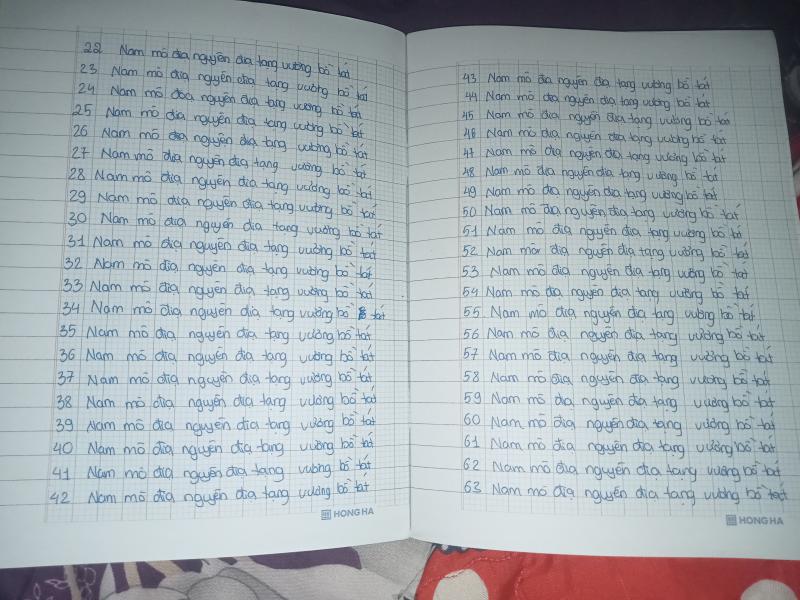 22 Nam mô địa nguyên địa tạng vương bồ tát
23 Nam mô địa nguyên địa tạng vương bồ tát
24 Nam mô đoa nguyên địa tạng vương bồ tát
25 Nam mô địa nguyên địa tạng vương bồ tát
26 Nam mô địa nguyên địa tạng vương bồ tát
27 Nam mô địa nguyên địa tạng vương bồ tát
28 Nam mô địa nguyên địa tạng vương bồ tát
29 Nam mô địa nguyên địa tạng vương bồ tát
30 Nam mô địa nguyên địa tạng vương bồ tát
31 Nam mô địa nguyên địa tạng vương bồ tát
32 Nam mô địa nguyên địa tạng vương bồ tát
33 Nam mô địa nguyên địa tạng vương bồ tát
34 Nam mô địa nguyên địa tạng vương bồ tát
35 Nam mô địa nguyên địa tạng vương bồ tát
36 Nam mô địa nguyên địa tạng vương bồ tát
37 Nam mô địa nguyên địa tạng vương bồ tát
38 Nam mô địa nguyên địa tạng vương bồ tát
39 Nam mô địa nguyên địa tạng vương bồ tát
40 Nam mô địa nguyên địa tạng vương bồ tát
41 Nam mô địa nguyên địa tạng vương bồ tát
42 Nam mô địa nguyên địa tạng vương bồ tát
HONG HA
43 Nam mô địa nguyên địa tạng vương bồ tát
44 Nam mô địa nguyên địa tạng vương bồ tát
45 Nam mô địa nguyên địa tạng vương bồ tát
46 Nam mô địa nguyên địa tạng vương bồ tát
47 Nam mô địa nguyên địa tạng vương bồ tát
48 Nam mô địa nguyên địa tạng vương bồ tát
49 Nam mô địa nguyên địa tạng vương bồ tát
50 Nam mô địa nguyên địa tạng vương bồ tát
51 Nam mô địa nguyên địa tạng vương bồ tá
52 Nam môr địa nguyên địa tạng vương bồ tát
53 Nam mô địa nguyên địa tạng vương bồ tát
54 Nam mô địa nguyên địa tạng vương bồ tát
55 Nam mô địa nguyên địa tạng vương bồ tát
56 Nam mô địa nguyên địa tạng vương bồ tát
57 Nam mô địa nguyên địa tạng vương bồ tát
58 Nam mô địa nguyên địa tạng vương bồ tát
59 Nam mô địa nguyên địa tạng vương bồ tát
60 Nam mô địa nguyên địa tạng vương bồ tát
61 Nam mô địa nguyên địa tạng vương bồ tát
62 Nam mô địa nguyên địa tạng vương bồ tát
63 Nam mô địa nguyên địa tạng vương bồ tát
HONG HA